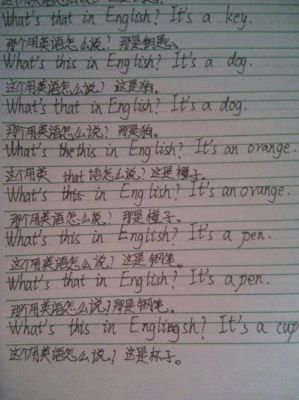 What's that in English? It's a key.
那个用英语怎么说？那是钥匙。
What's this in English? It's a dog.
这个用英语怎么说？这是狗。
What's that in English? It's a dog.
那个用英语怎么说？那是狗。
What's the this in English? It's an orange.
这个用英 that 语怎么说？这是橙子。
What's this in English? It's an orange.
那个用英语怎么说？那是橙子。
What's this in English? It's a pen.
这个用英语怎么说？这是钢笔。
What's that in English? It's a pen.
那个用英语怎么说？那是钢笔。
What's this in English? It's a cup
这个用英语怎么说？这是杯子。